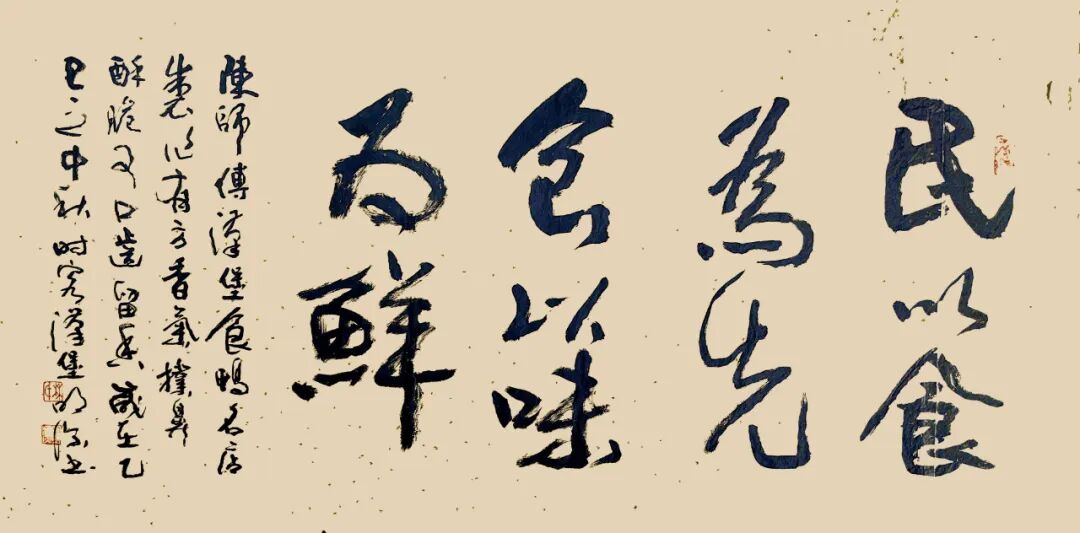 民以食
為先
食以味
为鮮
陳師傅漢堡食鴨名店
製作有方香氣撲鼻
酥脆可口齒留香歲在乙
巳之中秋时客漢堡书